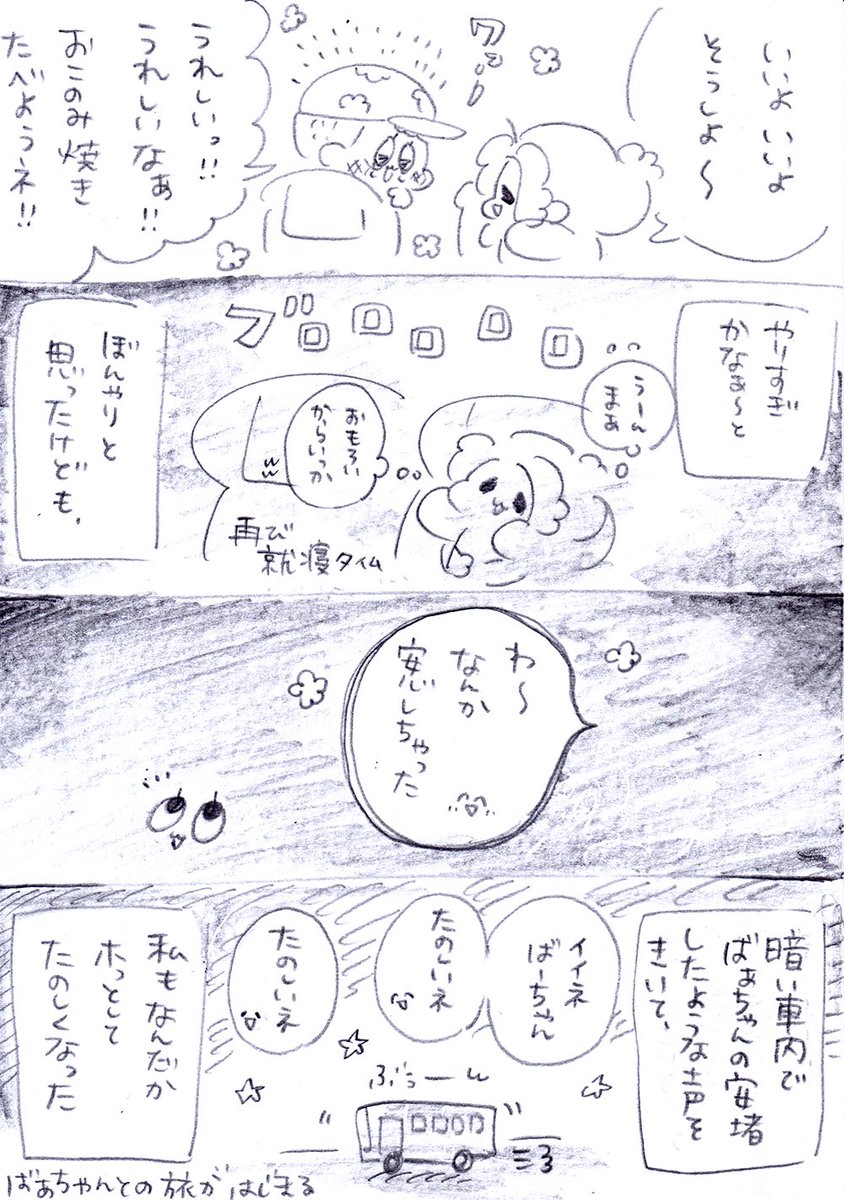 いいよいいよ
そうしよ〜
ワッ!
うれしいっ!!
うれしいなぁ!!
おこのみ焼き
たべようネ!!
やりすぎ
かなぁ〜と
うーん
まぁ
ブロロロロロ
おもろい
からいっか
ww
再び
就寝タイム
ぼんやりと
思ったけども、
わ〜
なんか
安心しちゃった
暗い車内で
ばぁちゃんの安堵
したような声を
きいて、
イイネ
ばーちゃん
たのしいネ
たのしいネ
ぶぅーん
私もなんだか
ホッとして
たのしくなった
ばあちゃんとの旅がはじまる